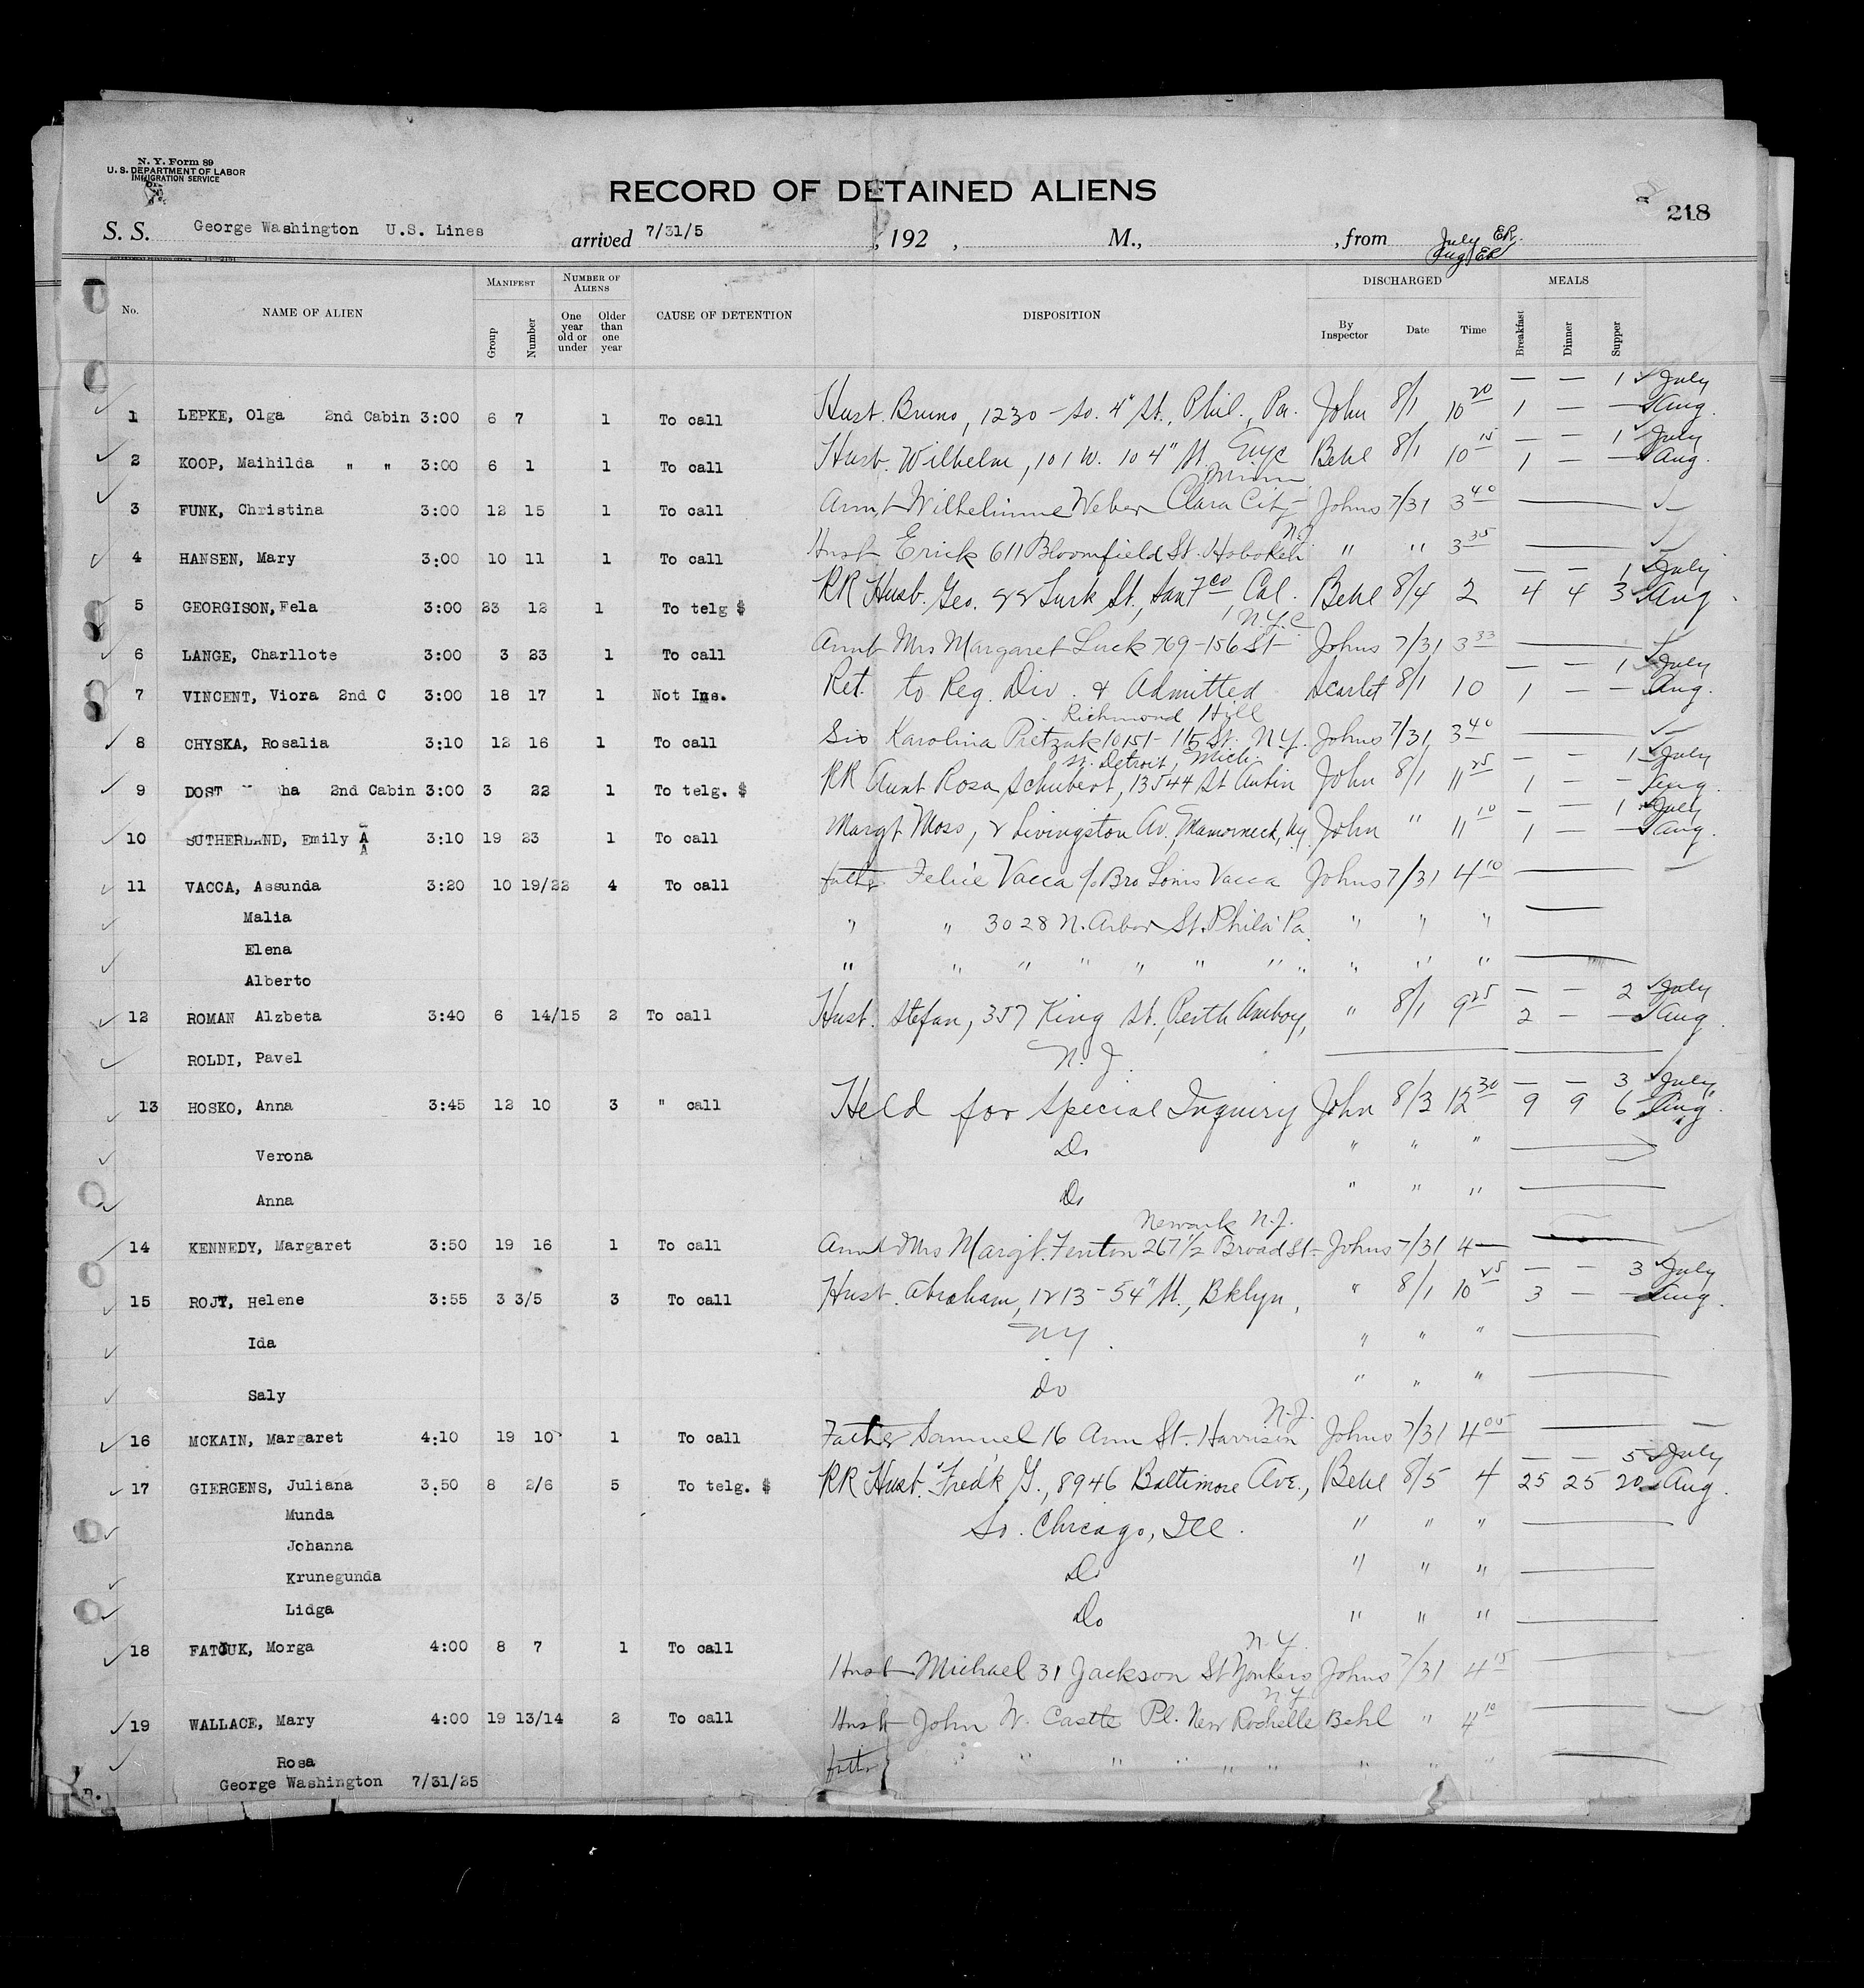 N. Y. Form 89
U. S. DEPARTMENT OF LABOR
IMMIGRATION SERVICE
RECORD OF DETAINED ALIENS
218
S. S. George Washington U.S. Lines arrived 7/31/5 , 192 , M., , from July ER.
Aug ER
No. NAME OF ALIEN MANIFEST Group Number NUMBER OF ALIENS One year old or under Older than one year CAUSE OF DETENTION DISPOSITION DISCHARGED By Inspector Date Time MEALS Breakfast Dinner Supper
— — 1 July
1 LEPKE, Olga 2nd Cabin 3:00 6 7 1 To call Husb. Bruno, 1230 - So. 4" St., Phil., Pa. John 8/1 10 20 1 — — Aug.
— — 1 July
2 KOOP, Maihilda " " 3:00 6 1 1 To call Husb. Wilhelm, 101 W. 104" St. Behl 8/1 10 15 1 — — Aug.
Minn
3 FUNK, Christina 3:00 12 15 1 To call Aunt Wilhelmine Weber Clara City Johns 7/31 3 40 —
N.J.
4 HANSEN, Mary 3:00 10 11 1 To call Husb Erick 611 Bloomfield St. Hoboken " " 3 35 —
— — 1 July
5 GEORGISON, Fela 3:00 23 12 1 To telg $ RR Husb. Geo. 22 Turk St., San Fco Cal. Behl 8/4 2 4 4 3 Aug.
N.Y.C
6 LANGE, Charllote 3:00 3 23 1 To call Aunt Mrs Margaret Luck 769-156 St Johns 7/31 3 33 —
— — 1 July
7 VINCENT, Viora 2nd C 3:00 18 17 1 Not Ins. Ret. to Reg. Div. & Admitted Scarlet 8/1 10 1 — — Aug.
Richmond Hill
8 CHYSKA, Rosalia 3:10 12 16 1 To call Sis Karolina Pietzuk 10151-115 St. N.Y. Johns 7/31 3 40 —
St. Detroit, Mich. — 1 July
9 DOST ha 2nd Cabin 3:00 3 22 1 To telg. $ RR Aunt Rosa Schubert, 13544 St Aubin John 8/1 11 25 1 — — Aug.
— — 1 July
10 SUTHERLAND, Emily A 3:10 19 23 1 To call Margt Moss, 2 Livingston Av., Mamorneck, Ny. John " 11 10 1 — — Aug.
11 VACCA, Assunda 3:20 10 19/22 4 To call father Felice Vacca c/o Bro Louis Vacca Johns 7/31 4 10 —
Malia " " 3028 N. Arbor St. Phila Pa. " " " —
Elena
" " " " " " " " " " " —
Alberto
— — 2 July
12 ROMAN Alzbeta 3:40 6 14/15 2 To call Husb. Stefan, 357 King St., Perth Amboy, " 8/1 9 25 2 — — Aug.
ROLDI, Pavel N. J.
— — 3 July
13 HOSKO, Anna 3:45 12 10 3 " call Held for Special Inquiry John 8/3 12 30 9 9 6 Aug.
Verona Do " " " —
Anna Do " " " —
Newark N.J.
14 KENNEDY, Margaret 3:50 19 16 1 To call Aunt Mrs Margt. Fenton 267 1/2 Broad St- Johns 7/31 4 — —
— — 3 July
15 ROJT, Helene 3:55 3 3/5 3 To call Husb. Abraham, 1213 - 54" St., Bklyn, " 8/1 10 25 3 — — Aug.
Ida NY. " " " —
Saly do " " " —
N.J.
16 MCKAIN, Margaret 4:10 19 10 1 To call Father Samuel 16 Ann St. Harrison Johns 7/31 4 00 —
— — 5 July
17 GIERGENS, Juliana 3:50 8 2/6 5 To telg. $ RR Husb. Fredk G., 8946 Baltimore Ave., Behl 8/5 4 25 25 20 Aug.
Munda So. Chicago, Ill. " " " —
Johanna
Krunegunda Do " " " —
Lidga Do " " " —
N.Y.
18 FATJUK, Morga 4:00 8 7 1 To call Husb Michael 31 Jackson St Yonkers Johns 7/31 4 15 —
N.Y.
19 WALLACE, Mary 4:00 19 13/14 2 To call Husb John W. Castle Pl. New Rochelle Behl " 4 10 —
Rosa father " " " " " " " " " —
George Washington 7/31/25